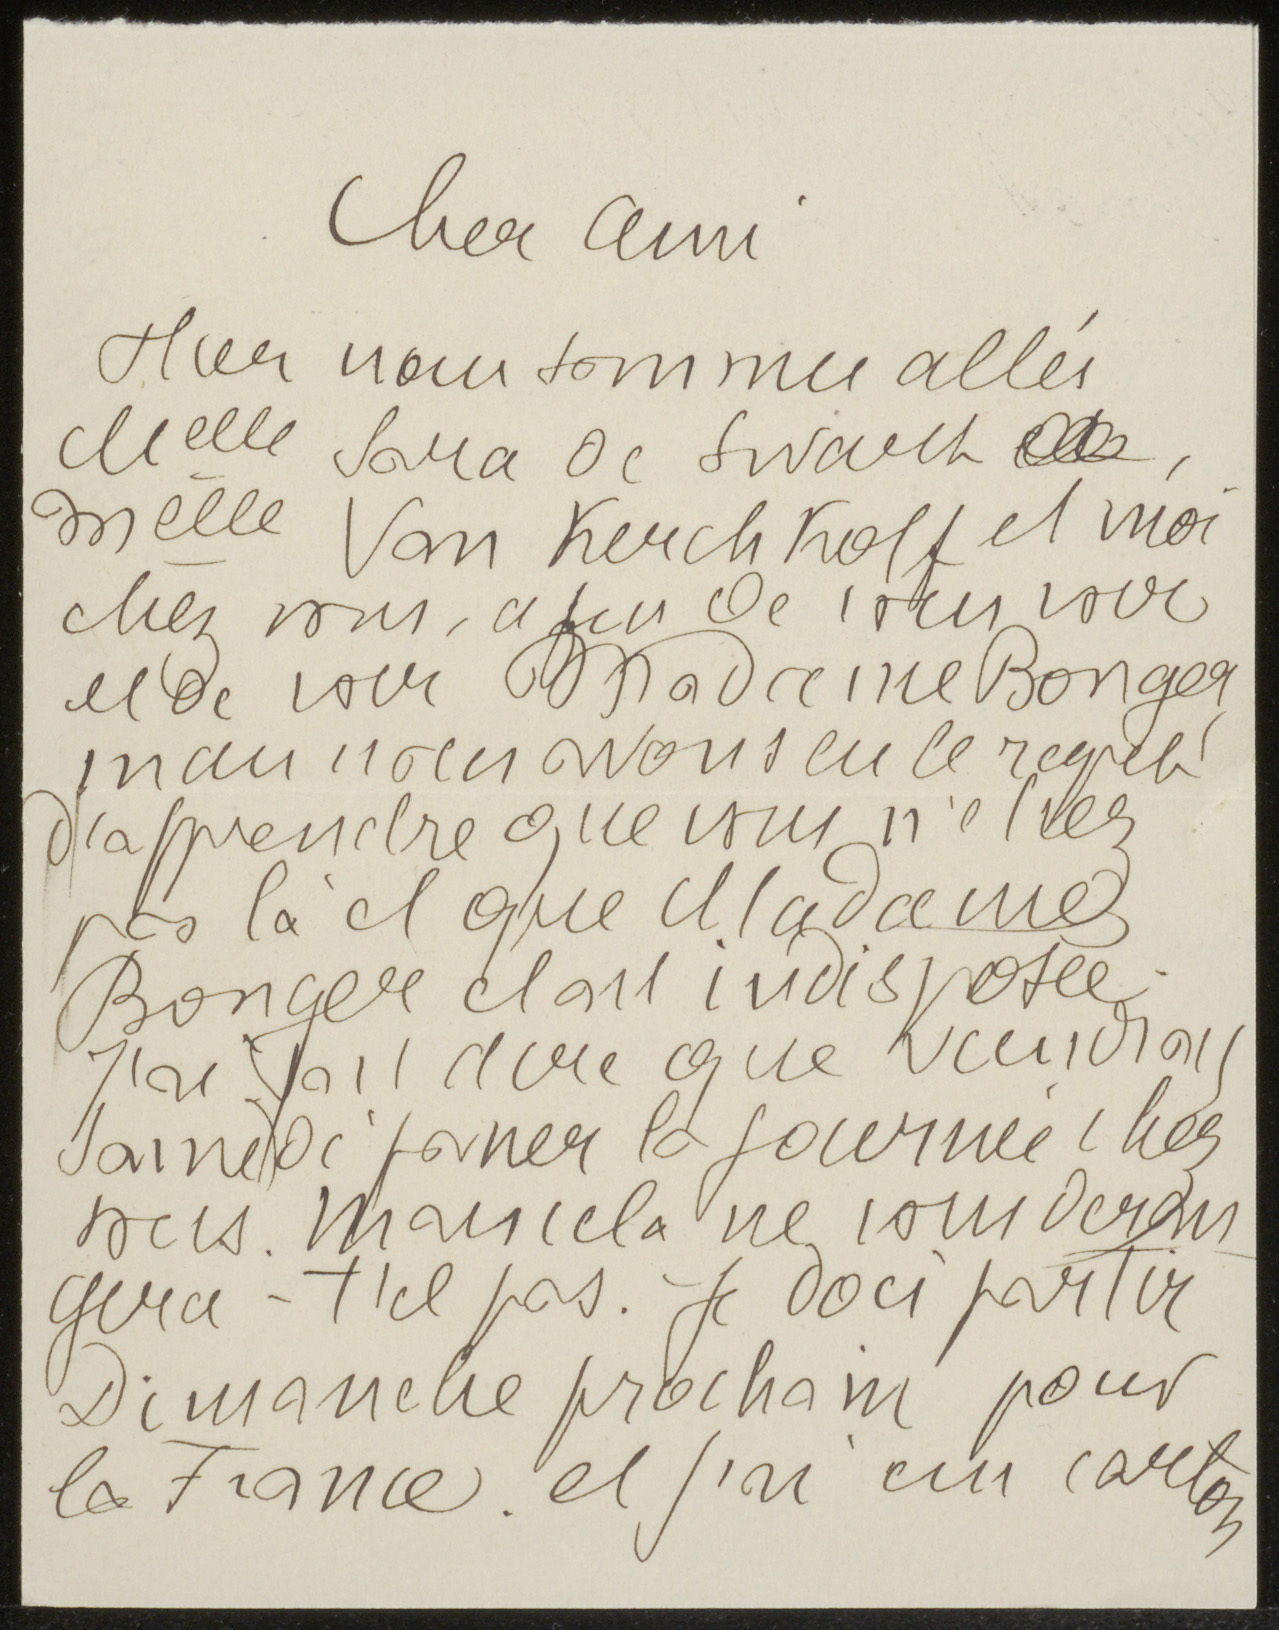 Cher ami
Hier nous sommes allés
Melle Sara de Swart,
melle Van Kerchkolf et moi
chez vous, afin de vous voir
et de voir Madame Bonger
mais nous avons eu le regret
d'apprendre que vous n'etiez
pas là et que Madame
Bonger etait indisposée.
J'ai fait dire que viendrais
Samedi passer la journée chez
vous. Mais cela ne vous deran
gera-t'il pas. Je doci partir
Dimanche prochain pour
la France. et j'ai un carton